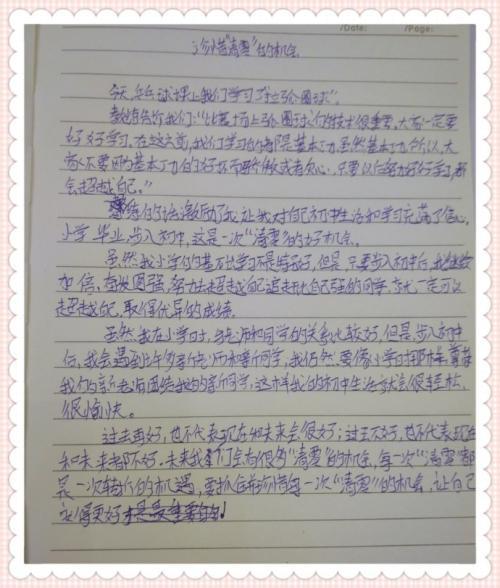 /Date: /Page:
珍惜“清零”的机会
今天，乒乓球课上我们学习“拉弧圈球”。
教练告诉我们：“比赛场上弧圈球的技术很重要，大家一定要
好好学习，在这之前，我们学习的都是基本功，虽然基本功
家不要因为基本功的好坏而或者灰心，只要以后努力好好学习，都
会超越自己。”
教练的话激励了我，让我对自己初中生活和学习充满了信心。
小学毕业，步入初中，这是一次“清零”的好机会。
虽然我小学的基础学习不是特别好，但是，只要步入初中后，我继续
加倍，奋发图强，努力去超越自己，追赶比自己强的同学，就一定可以
超越自己，取得优异的成绩。
虽然我在小学时，与老师和同学的关系比较好，但是，步入初中
后，我会遇到许多新老师和新同学，我仍然要像小学时那样，尊敬
我们的新老师，团结我的新同学，这样我的初中生活就会很轻松、
很愉快。
过去再好，也不代表现在和未来会很好；过去不好，也不代表现在
和未来都不好。未来我们会有很多“清零”的机会，每一次“清零”都
是一次转折的机遇，要抓住和珍惜每一次“清零”的机会，让自己
变得更好才是最重要的！